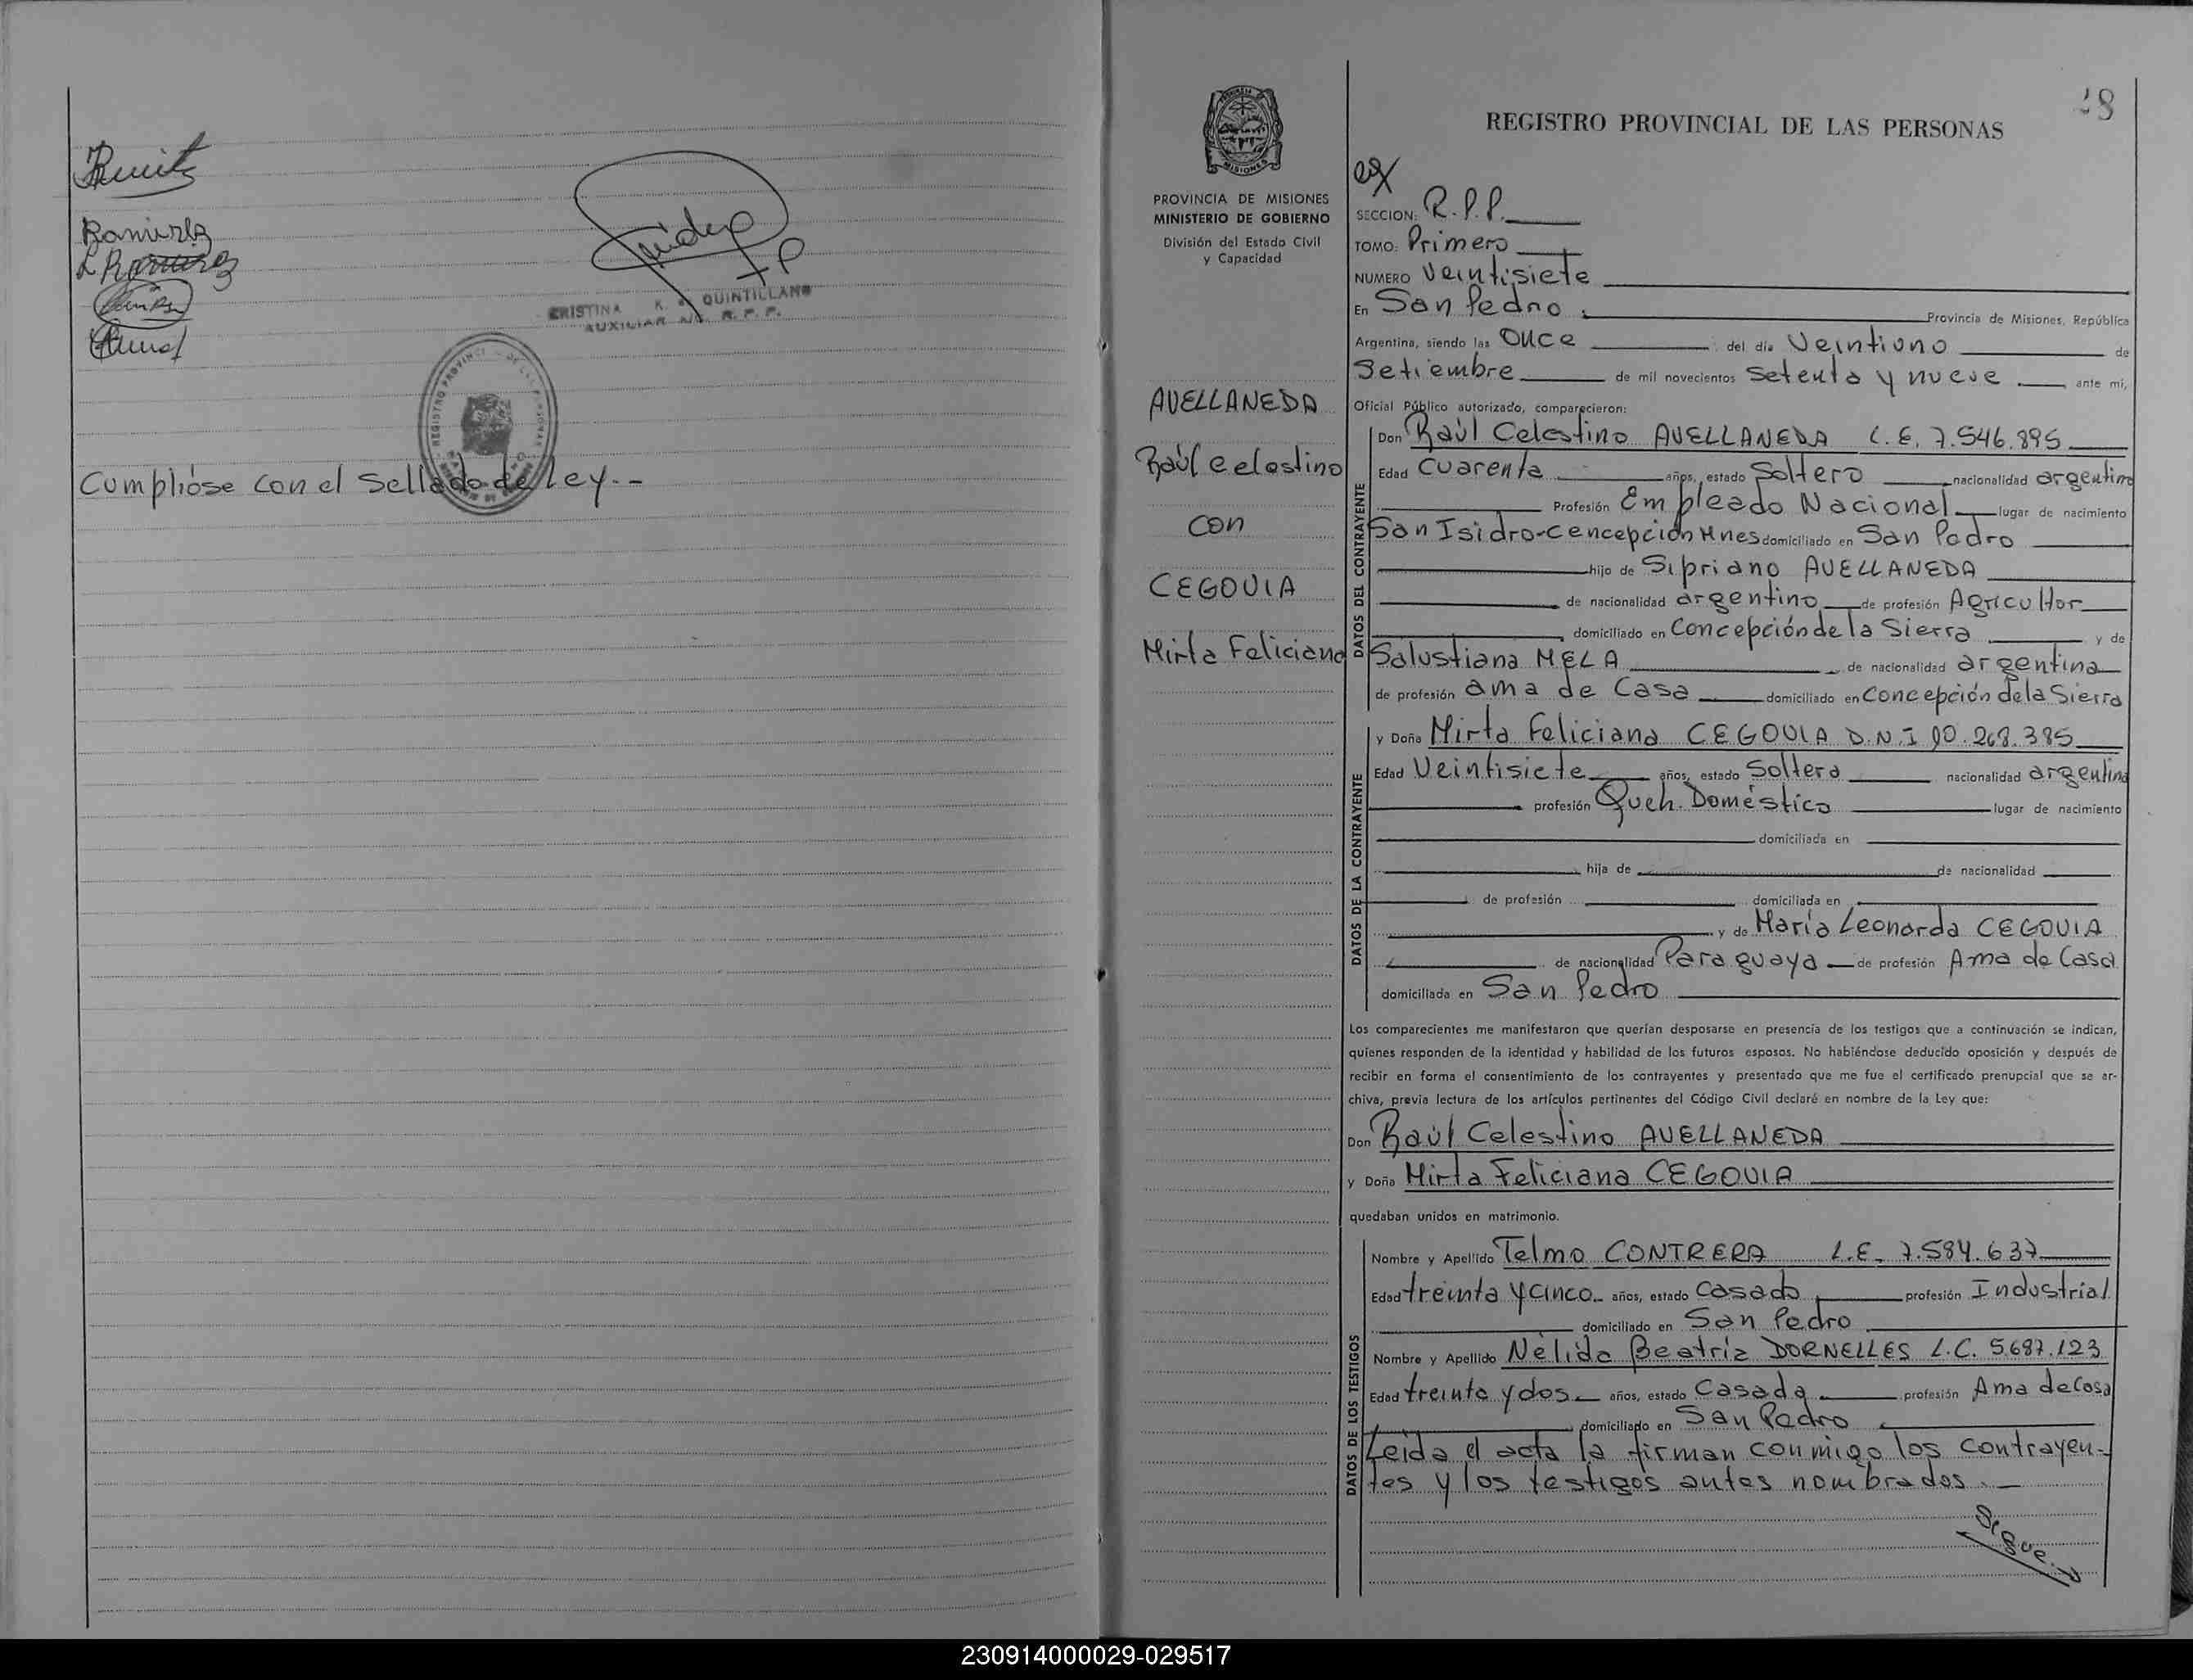 Ramirez
L Ramirez
CRISTINA K. QUINTILLAN
AUXILIAR R. P. P.
Cumplióse con el Sellado de ley.-
28
REGISTRO PROVINCIAL DE LAS PERSONAS
MISIONES
PROVINCIA DE MISIONES
MINISTERIO DE GOBIERNO
División del Estado Civil
y Capacidad
AVELLANEDA
Raúl Celestino
con
CEGOVIA
Mirta Feliciana
SECCION: R.P.P.
TOMO: Primero
NUMERO Veintisiete
En San Pedro Provincia de Misiones, República
Argentina, siendo las Once del día Veintiuno de
Setiembre de mil novecientos setenta y nueve ante mí,
Oficial Público autorizado, comparecieron:
DATOS DEL CONTRAYENTE
Don Raúl Celestino AVELLANEDA L.E. 7.546.895
Edad Cuarenta años, estado Soltero nacionalidad argentino
Profesión Empleado Nacional lugar de nacimiento
San Isidro-Cencepción Mnes domiciliado en San Pedro
hijo de Sipriano AVELLANEDA
de nacionalidad argentino de profesión Agricultor
domiciliado en Concepción de la Sierra y de
Salustiana MELA de nacionalidad argentina
de profesión ama de Casa domiciliado en Concepción de la Sierra
DATOS DE LA CONTRAYENTE
y Doña Mirta Feliciana CEGOVIA D.N.I 10.268.385
Edad Veintisiete años, estado Soltera nacionalidad argentina
profesión Queh. Doméstico lugar de nacimiento
domiciliada en
hija de de nacionalidad
de profesión domiciliada en
y de María Leonarda CEGOVIA
de nacionalidad Paraguaya de profesión Ama de Casa
domiciliada en San Pedro
Los comparecientes me manifestaron que querían desposarse en presencia de los testigos que a continuación se indican,
quienes responden de la identidad y habilidad de los futuros esposos. No habiéndose deducido oposición y después de
recibir en forma el consentimiento de los contrayentes y presentado que me fue el certificado prenupcial que se ar-
chiva, previa lectura de los artículos pertinentes del Código Civil declaré en nombre de la Ley que:
Don Raúl Celestino AVELLANEDA
y Doña Mirta Feliciana CEGOVIA
quedaban unidos en matrimonio.
DATOS DE LOS TESTIGOS
Nombre y Apellido Telmo CONTRERA L.E. 7.584.637
Edad treinta y cinco años, estado Casado profesión Industrial
domiciliado en San Pedro
Nombre y Apellido Nélida Beatriz DORNELLES L.C. 5.687.123
Edad treinta y dos años, estado Casada profesión Ama de Casa
domiciliado en San Pedro
Leida el acta la firman conmigo los contrayen-
tes y los testigos antes nombrados.-
Sigue.
230914000029-029517